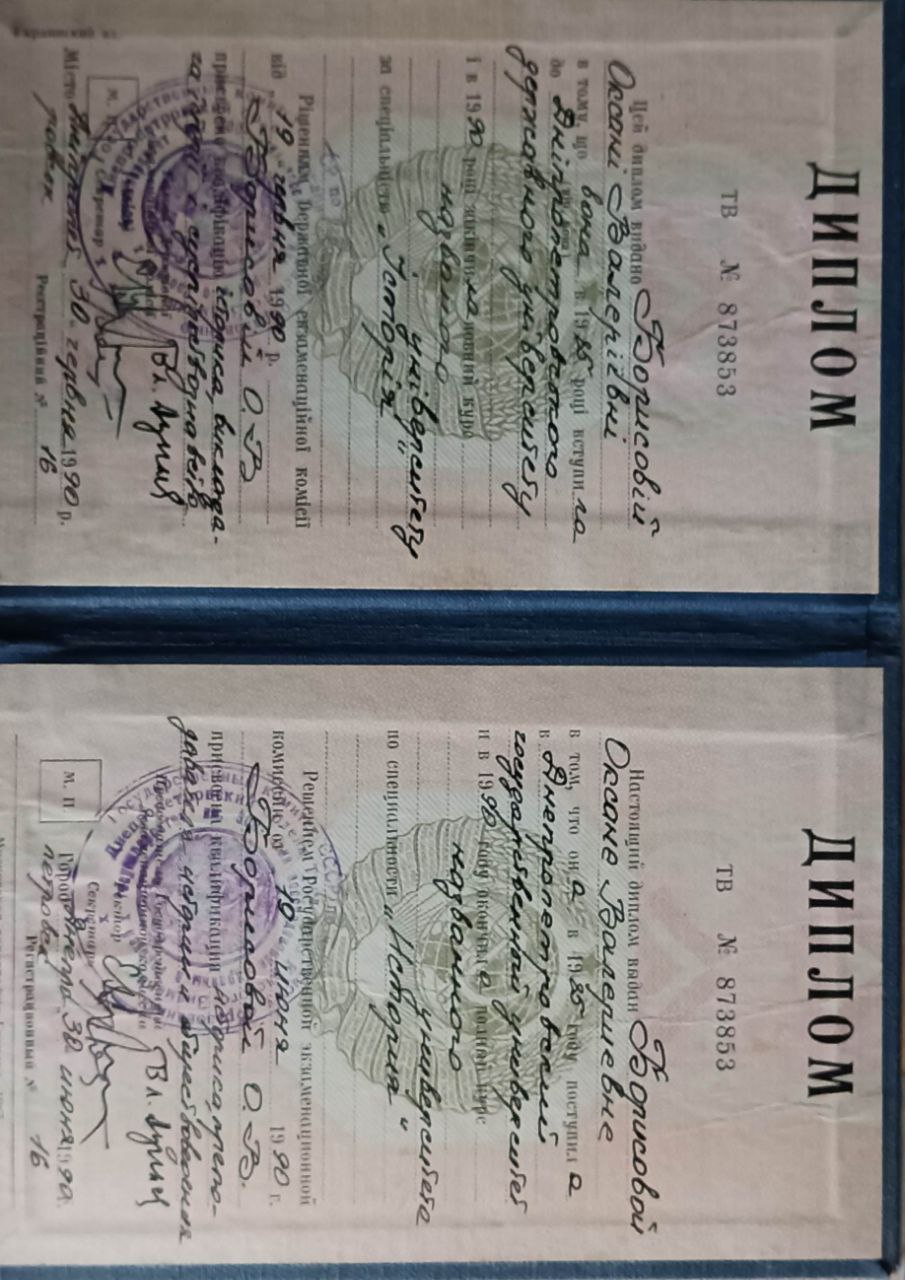 ДИПЛОМ
ТВ № 873853
Цей диплом видано Борисовій
Оксані Валеріївні
в тому, що вона в 1985 році вступила
до Дніпропетровського
державного університету
і в 1990 році закінчила повний курс
названого
університету
за спеціальністю „Історія"
Рішенням Державної екзаменаційної комісії
від 19 червня 1990 р.
Борисовій О.В.
присвоєно кваліфікацію історика, виклада-
ча історії і суспільствознавства
М. П.
Ректор
Секретар
Місто Дніпропет- 30 червня 1990 р.
ровськ
Реєстраційний № 16
ДИПЛОМ
ТВ № 873853
Настоящий диплом выдан Борисовой
Оксане Валериевне
в том, что она в 1985 году поступила
в Днепропетровский
государственный университет
и в 1990 году окончила полный курс
названного
университета
по специальности „История"
Решением Государственной экзаменационной
комиссии от 19 июня 1990 г.
Борисовой О.В.
присвоена квалификация историка, препо-
давателя истории и обществоведения
М. П.
Ректор
Секретарь
Город Днепро- 30 июня 1990.
петровск
Регистрационный № 16